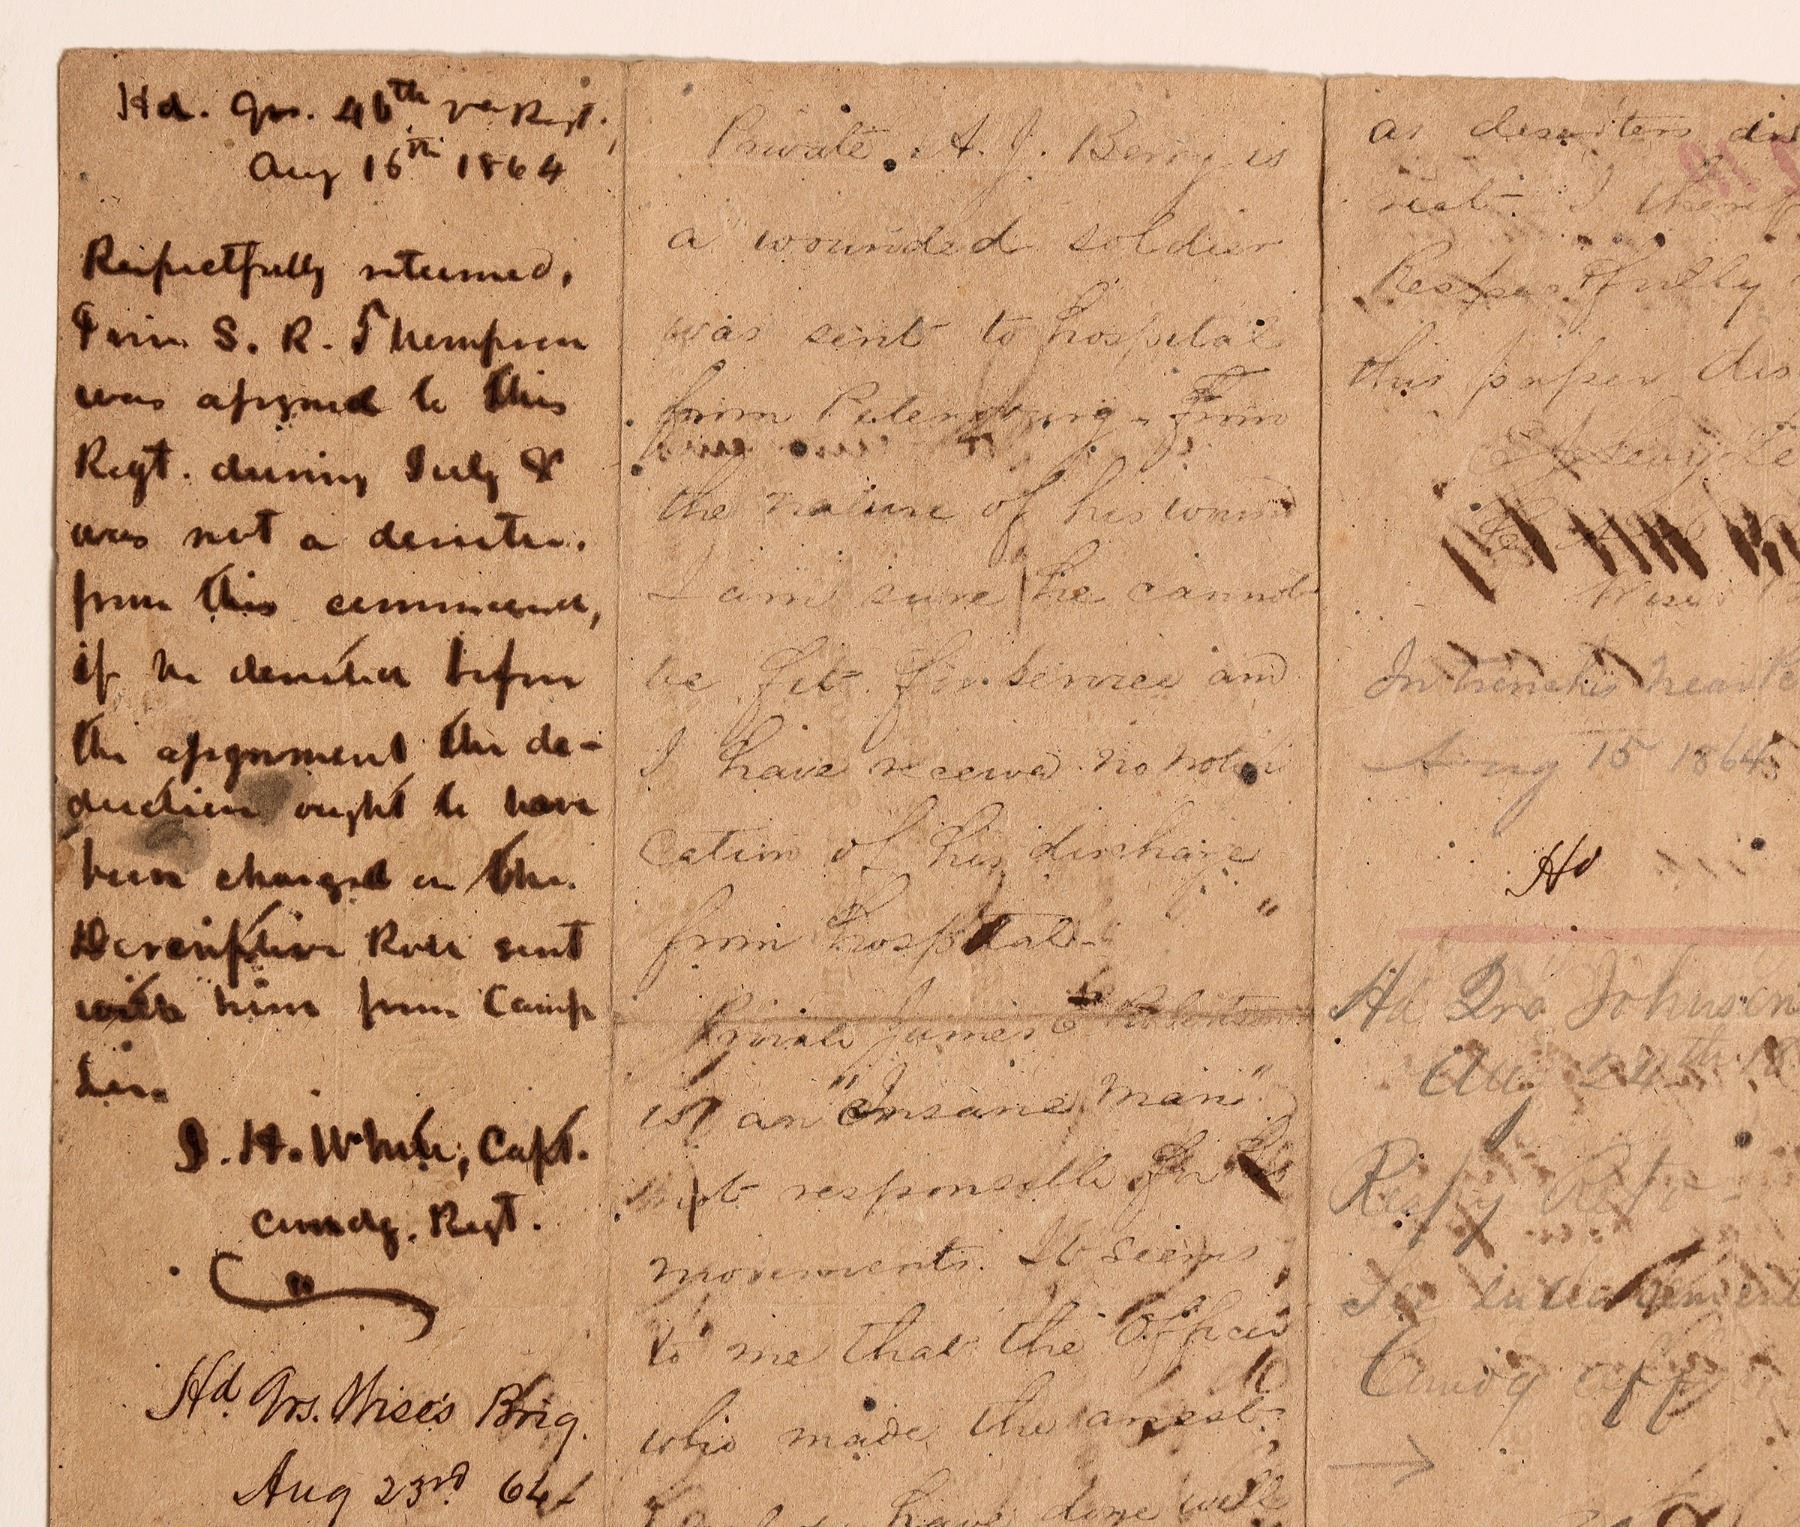 Hd. Qrs. 46th Va Regt.,
Aug 16th 1864
Respectfully returned,
Priv. S. R. Thompson
was assigned to this
Regt. during July &
was not a deserter
from this command,
if he deserted before
the assignment the de-
duction ought to have
been charged on the
Descriptive Roll sent
with him from Camp
Lee.
J. H. White, Capt.
Comdg. Regt.
Hd Qrs. Wise's Brig.
Aug 23rd 64
Private A. J. Berry is
a wounded soldier
was sent to hospital
from Petersburg - From
the nature of his wound
I am sure he cannot
be fit for service and
I have receivd no notifi
cation of his discharge
from hospital -
Private James Robertson
is an "Insane man"
not responsible for his
movements. It seems
to me that the Officer
who made the arrest
have done well
as deserters
rect. I
Respectfully
this paper
Wise's
In trenches near Pe
Aug 15 1864
Hd
Hd Qrs Johnson
Aug 24th 18
Resfy Retd
See indorsement
Comdg off